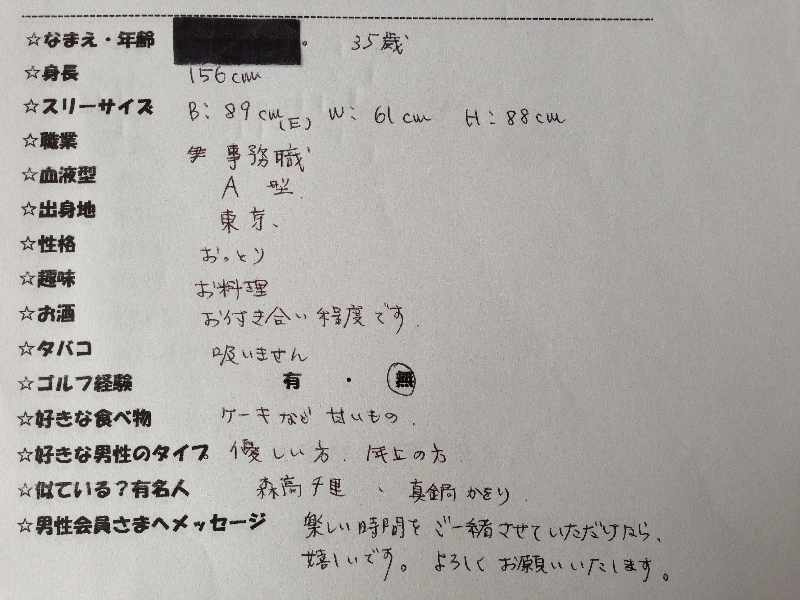 ☆なまえ・年齢 35歳
☆身長 156cm
☆スリーサイズ B: 89cm(E) W: 61cm H: 88cm
☆職業 事務職
☆血液型 A型.
☆出身地 東京、
☆性格 おっとり
☆趣味 お料理
☆お酒 お付き合い程度です.
☆タバコ 吸いません
☆ゴルフ経験 有・無
☆好きな食べ物 ケーキなど甘いもの.
☆好きな男性のタイプ 優しい方. 年上の方.
☆似ている?有名人 森高千里、真鍋かをり.
☆男性会員さまへメッセージ 楽しい時間をご一緒させていただけたら、
嬉しいです。よろしくお願いいたします。